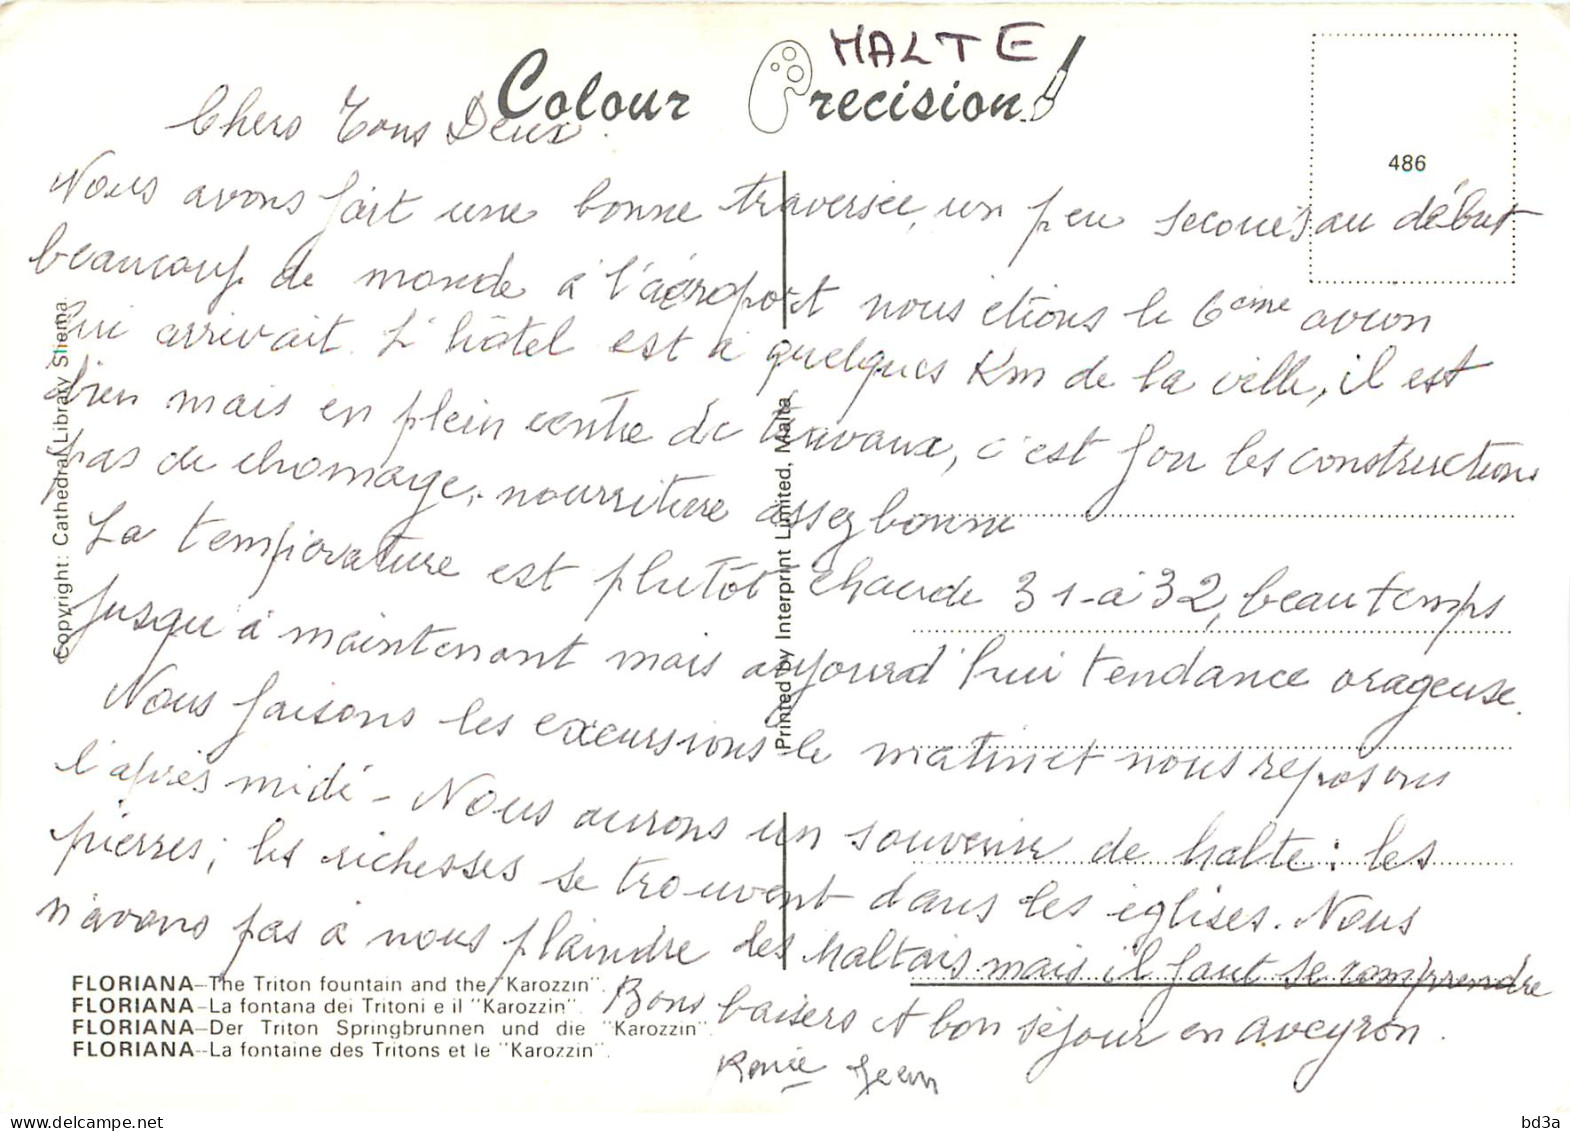 MALTE
Colour Precision
486
Chers Tous Deux.
Nous avons fait une bonne traversée, un peu secoués au début
beaucoup de monde à l'aéroport nous étions le 6ème avion
qui arrivait. L'hôtel est à quelques Km de la ville, il est
bien mais en plein centre de travaux, c'est fou les constructions
pas de chomage, nourriture assez bonne
La température est plutôt chaude 31-à 32, beau temps
jusqu'à maintenant mais aujourd'hui tendance orageuse.
Nous faisons les excursions le matin et nous reposons
l'après midi - Nous aurons un souvenir de Malte : les
pierres ; les richesses se trouvent dans les églises. Nous
n'avons pas à nous plaindre des Maltais mais il faut se comprendre
Bons baisers et bon séjour en aveyron.
Jean
FLORIANA--The Triton fountain and the "Karozzin".
FLORIANA--La fontana dei Tritoni e il "Karozzin".
FLORIANA--Der Triton Springbrunnen und die "Karozzin".
FLORIANA--La fontaine des Tritons et le "Karozzin".
Copyright: Cathedral Library Sliema.
Printed by Interprint Limited, Malta
bd3a